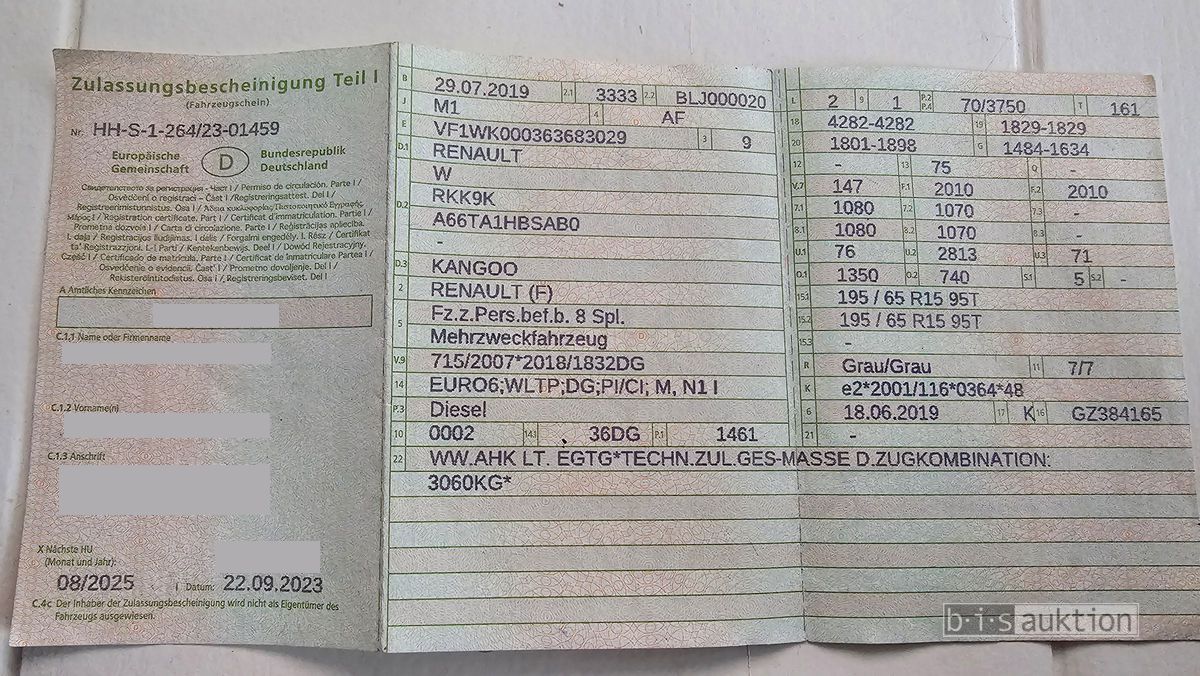 Zulassungsbescheinigung Teil I
(Fahrzeugschein)
Nr. HH-S-1-264/23-01459
Europäische Gemeinschaft D Bundesrepublik Deutschland
Свидетелството за регистрация - Част I / Permiso de circulación. Parte I /
Osvědčení o registraci - Část I / Registreringsattest. Del I /
Registreerimistunnistus. Osa I / Άδεια κυκλοφορίας/Πιστοποιητικό Εγγραφής.
Μέρος I / Registration certificate. Part I / Certificat d'immatriculation. Partie I /
Prometna dozvola I / Carta di circolazione. Parte I / Reģistrācijas apliecība.
I. daļa / Registracijos liudijimas. I dalis / Forgalmi engedély. I. Rész / Ċertifikat
ta' Reġistrazzjoni. L-I Parti / Kentekenbewijs. Deel I / Dowód Rejestracyjny.
Część I / Certificado de matrícula. Parte I / Certificat de înmatriculare Partea I /
Osvedčenie o evidencii. Časť I / Prometno dovoljenje. Del I /
Rekisteröintitodistus. Osa I / Registreringsbeviset. Del I
A Amtliches Kennzeichen
C.1.1 Name oder Firmenname
C.1.2 Vorname(n)
C.1.3 Anschrift
X Nächste HU
(Monat und Jahr):
08/2025 I Datum: 22.09.2023
C.4c Der Inhaber der Zulassungsbescheinigung wird nicht als Eigentümer des
Fahrzeugs ausgewiesen.
B 29.07.2019 2.1 3333 2.2 BLJ000020
J M1 4 AF
E VF1WK000363683029 3 9
D.1 RENAULT
W
D.2 RKK9K
A66TA1HBSAB0
-
D.3 KANGOO
2 RENAULT (F)
5 Fz.z.Pers.bef.b. 8 Spl.
Mehrzweckfahrzeug
V.9 715/2007*2018/1832DG
14 EURO6;WLTP;DG;PI/CI; M, N1 I
P.3 Diesel
10 0002 14.1 36DG P.1 1461
22 WW.AHK LT. EGTG*TECHN.ZUL.GES-MASSE D.ZUGKOMBINATION:
3060KG*
L 2 9 1 P.2 P.4 70/3750 T 161
18 4282-4282 19 1829-1829
20 1801-1898 G 1484-1634
12 - 13 75 Q -
V.7 147 F.1 2010 F.2 2010
7.1 1080 7.2 1070 7.3 -
8.1 1080 8.2 1070 8.3 -
U.1 76 U.2 2813 U.3 71
O.1 1350 O.2 740 S.1 5 S.2 -
15.1 195 / 65 R15 95T
15.2 195 / 65 R15 95T
15.3 -
R Grau/Grau 11 7/7
K e2*2001/116*0364*48
6 18.06.2019 17 K 16 GZ384165
21 -
b·i·s auktion